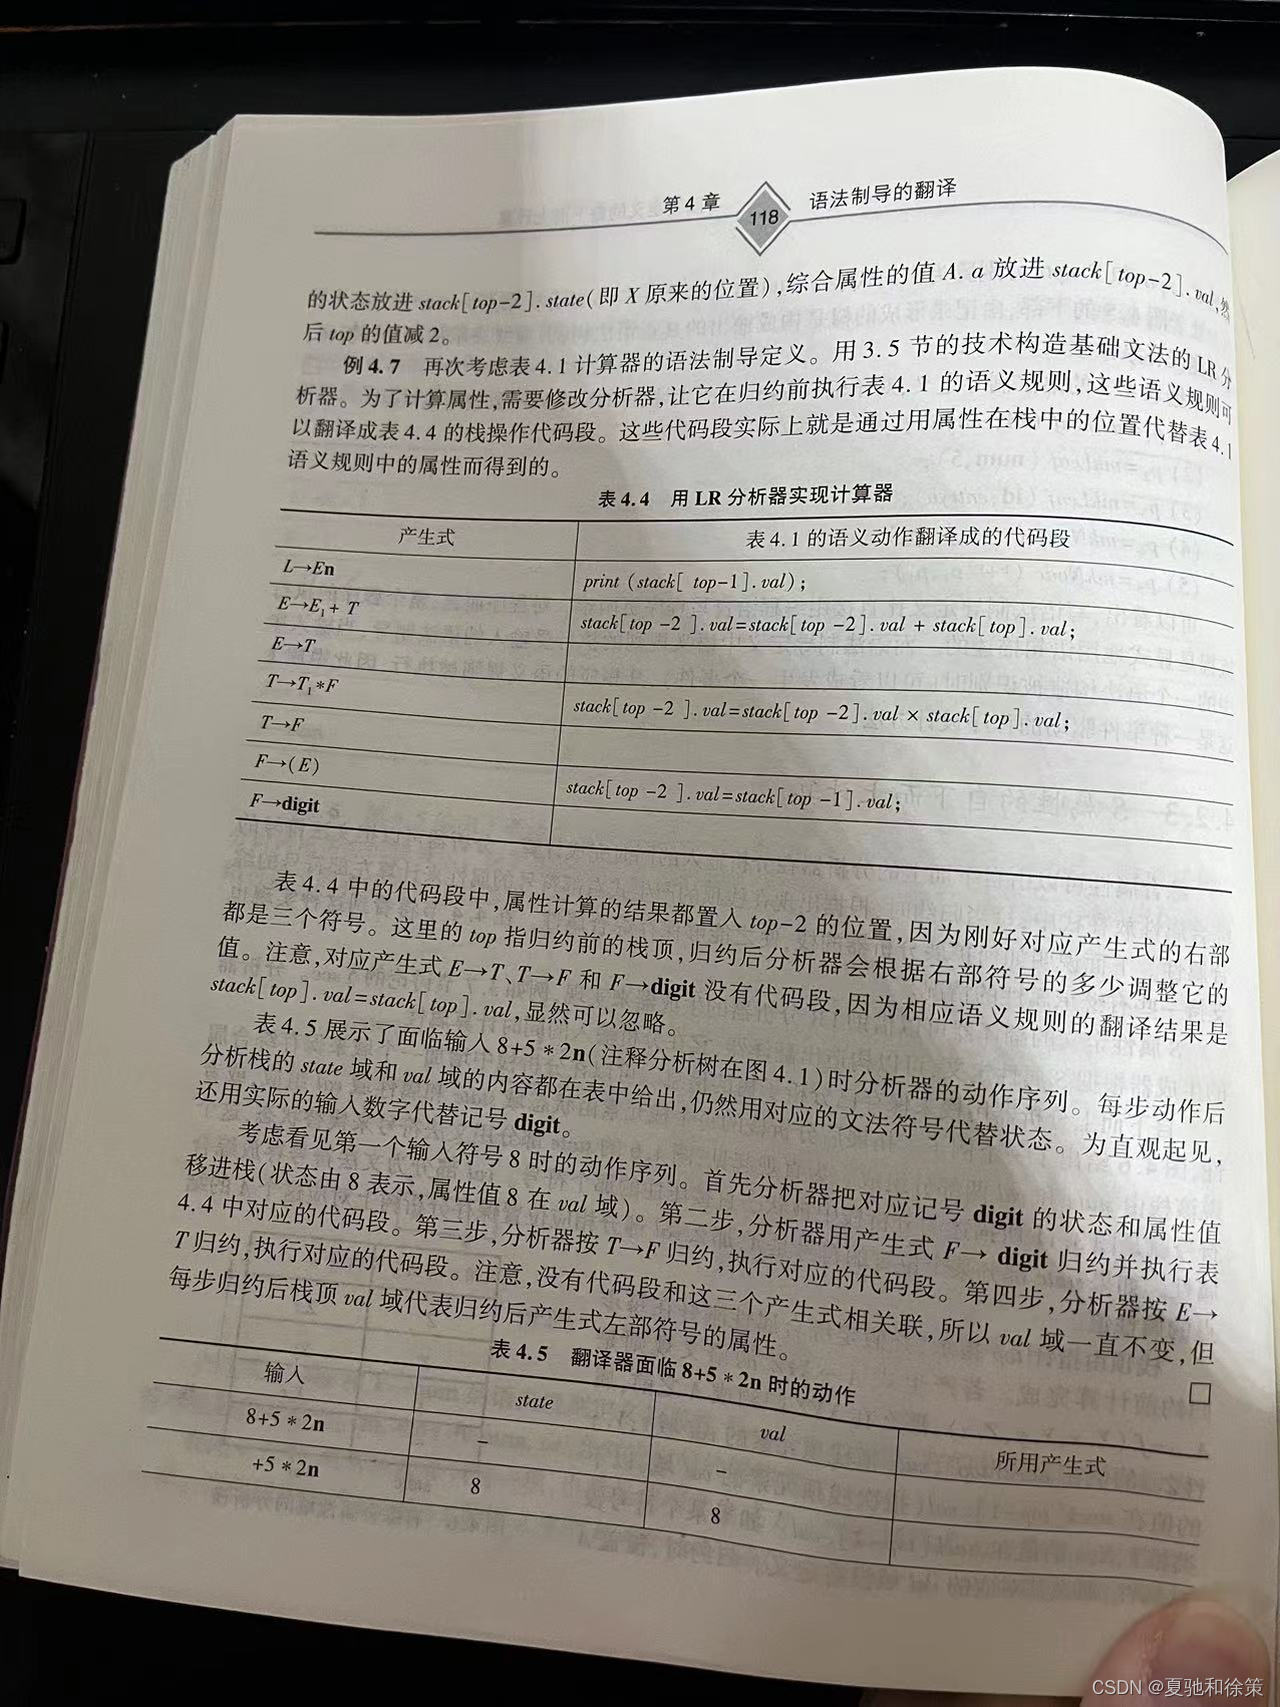 第4章 118 语法制导的翻译
的状态放进 stack[top-2].state(即 X 原来的位置),综合属性的值 A.a 放进 stack[top-2].val,然
后 top 的值减 2。
例 4.7 再次考虑表 4.1 计算器的语法制导定义。用 3.5 节的技术构造基础文法的 LR 分
析器。为了计算属性,需要修改分析器,让它在归约前执行表 4.1 的语义规则,这些语义规则可
以翻译成表 4.4 的栈操作代码段。这些代码段实际上就是通过用属性在栈中的位置代替表 4.1
语义规则中的属性而得到的。
表 4.4 用 LR 分析器实现计算器
产生式 表 4.1 的语义动作翻译成的代码段
L→En print (stack[ top-1].val);
E→E₁+ T stack[top -2 ].val=stack[top -2].val + stack[top].val;
E→T
T→T₁*F stack[top -2 ].val=stack[top -2].val × stack[top].val;
T→F
F→(E) stack[top -2 ].val=stack[top -1].val;
F→digit
表 4.4 中的代码段中,属性计算的结果都置入 top-2 的位置,因为刚好对应产生式的右部
都是三个符号。这里的 top 指归约前的栈顶,归约后分析器会根据右部符号的多少调整它的
值。注意,对应产生式 E→T、T→F 和 F→digit 没有代码段,因为相应语义规则的翻译结果是
stack[top].val=stack[top].val,显然可以忽略。
表 4.5 展示了面临输入 8+5*2n(注释分析树在图 4.1)时分析器的动作序列。每步动作后
分析栈的 state 域和 val 域的内容都在表中给出,仍然用对应的文法符号代替状态。为直观起见,
还用实际的输入数字代替记号 digit。
考虑看见第一个输入符号 8 时的动作序列。首先分析器把对应记号 digit 的状态和属性值
移进栈(状态由 8 表示,属性值 8 在 val 域)。第二步,分析器用产生式 F→ digit 归约并执行表
4.4 中对应的代码段。第三步,分析器按 T→F 归约,执行对应的代码段。第四步,分析器按 E→
T 归约,执行对应的代码段。注意,没有代码段和这三个产生式相关联,所以 val 域一直不变,但
每步归约后栈顶 val 域代表归约后产生式左部符号的属性。 □
表 4.5 翻译器面临 8+5*2n 时的动作
输入 state val 所用产生式
8+5*2n - -
+5*2n 8 8
CSDN @夏驰和徐策